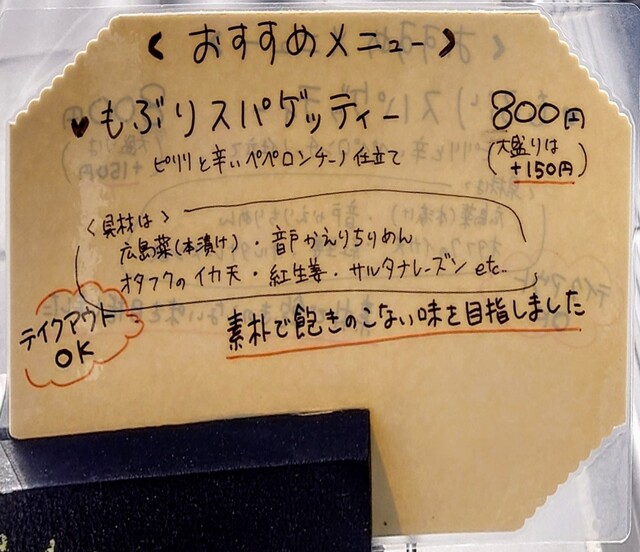 〈 おすすめメニュー 〉
♥もぶりスパゲッティー 800円
ピリリと辛いペペロンチーノ仕立て
(大盛りは
+150円)
〈具材は〉
広島菜(本漬け)・音戸かえりちりめん
オタフクのイカ天・紅生姜・サルタナレーズン etc..
テイクアウト
OK
素朴で飽きのこない味を目指しました